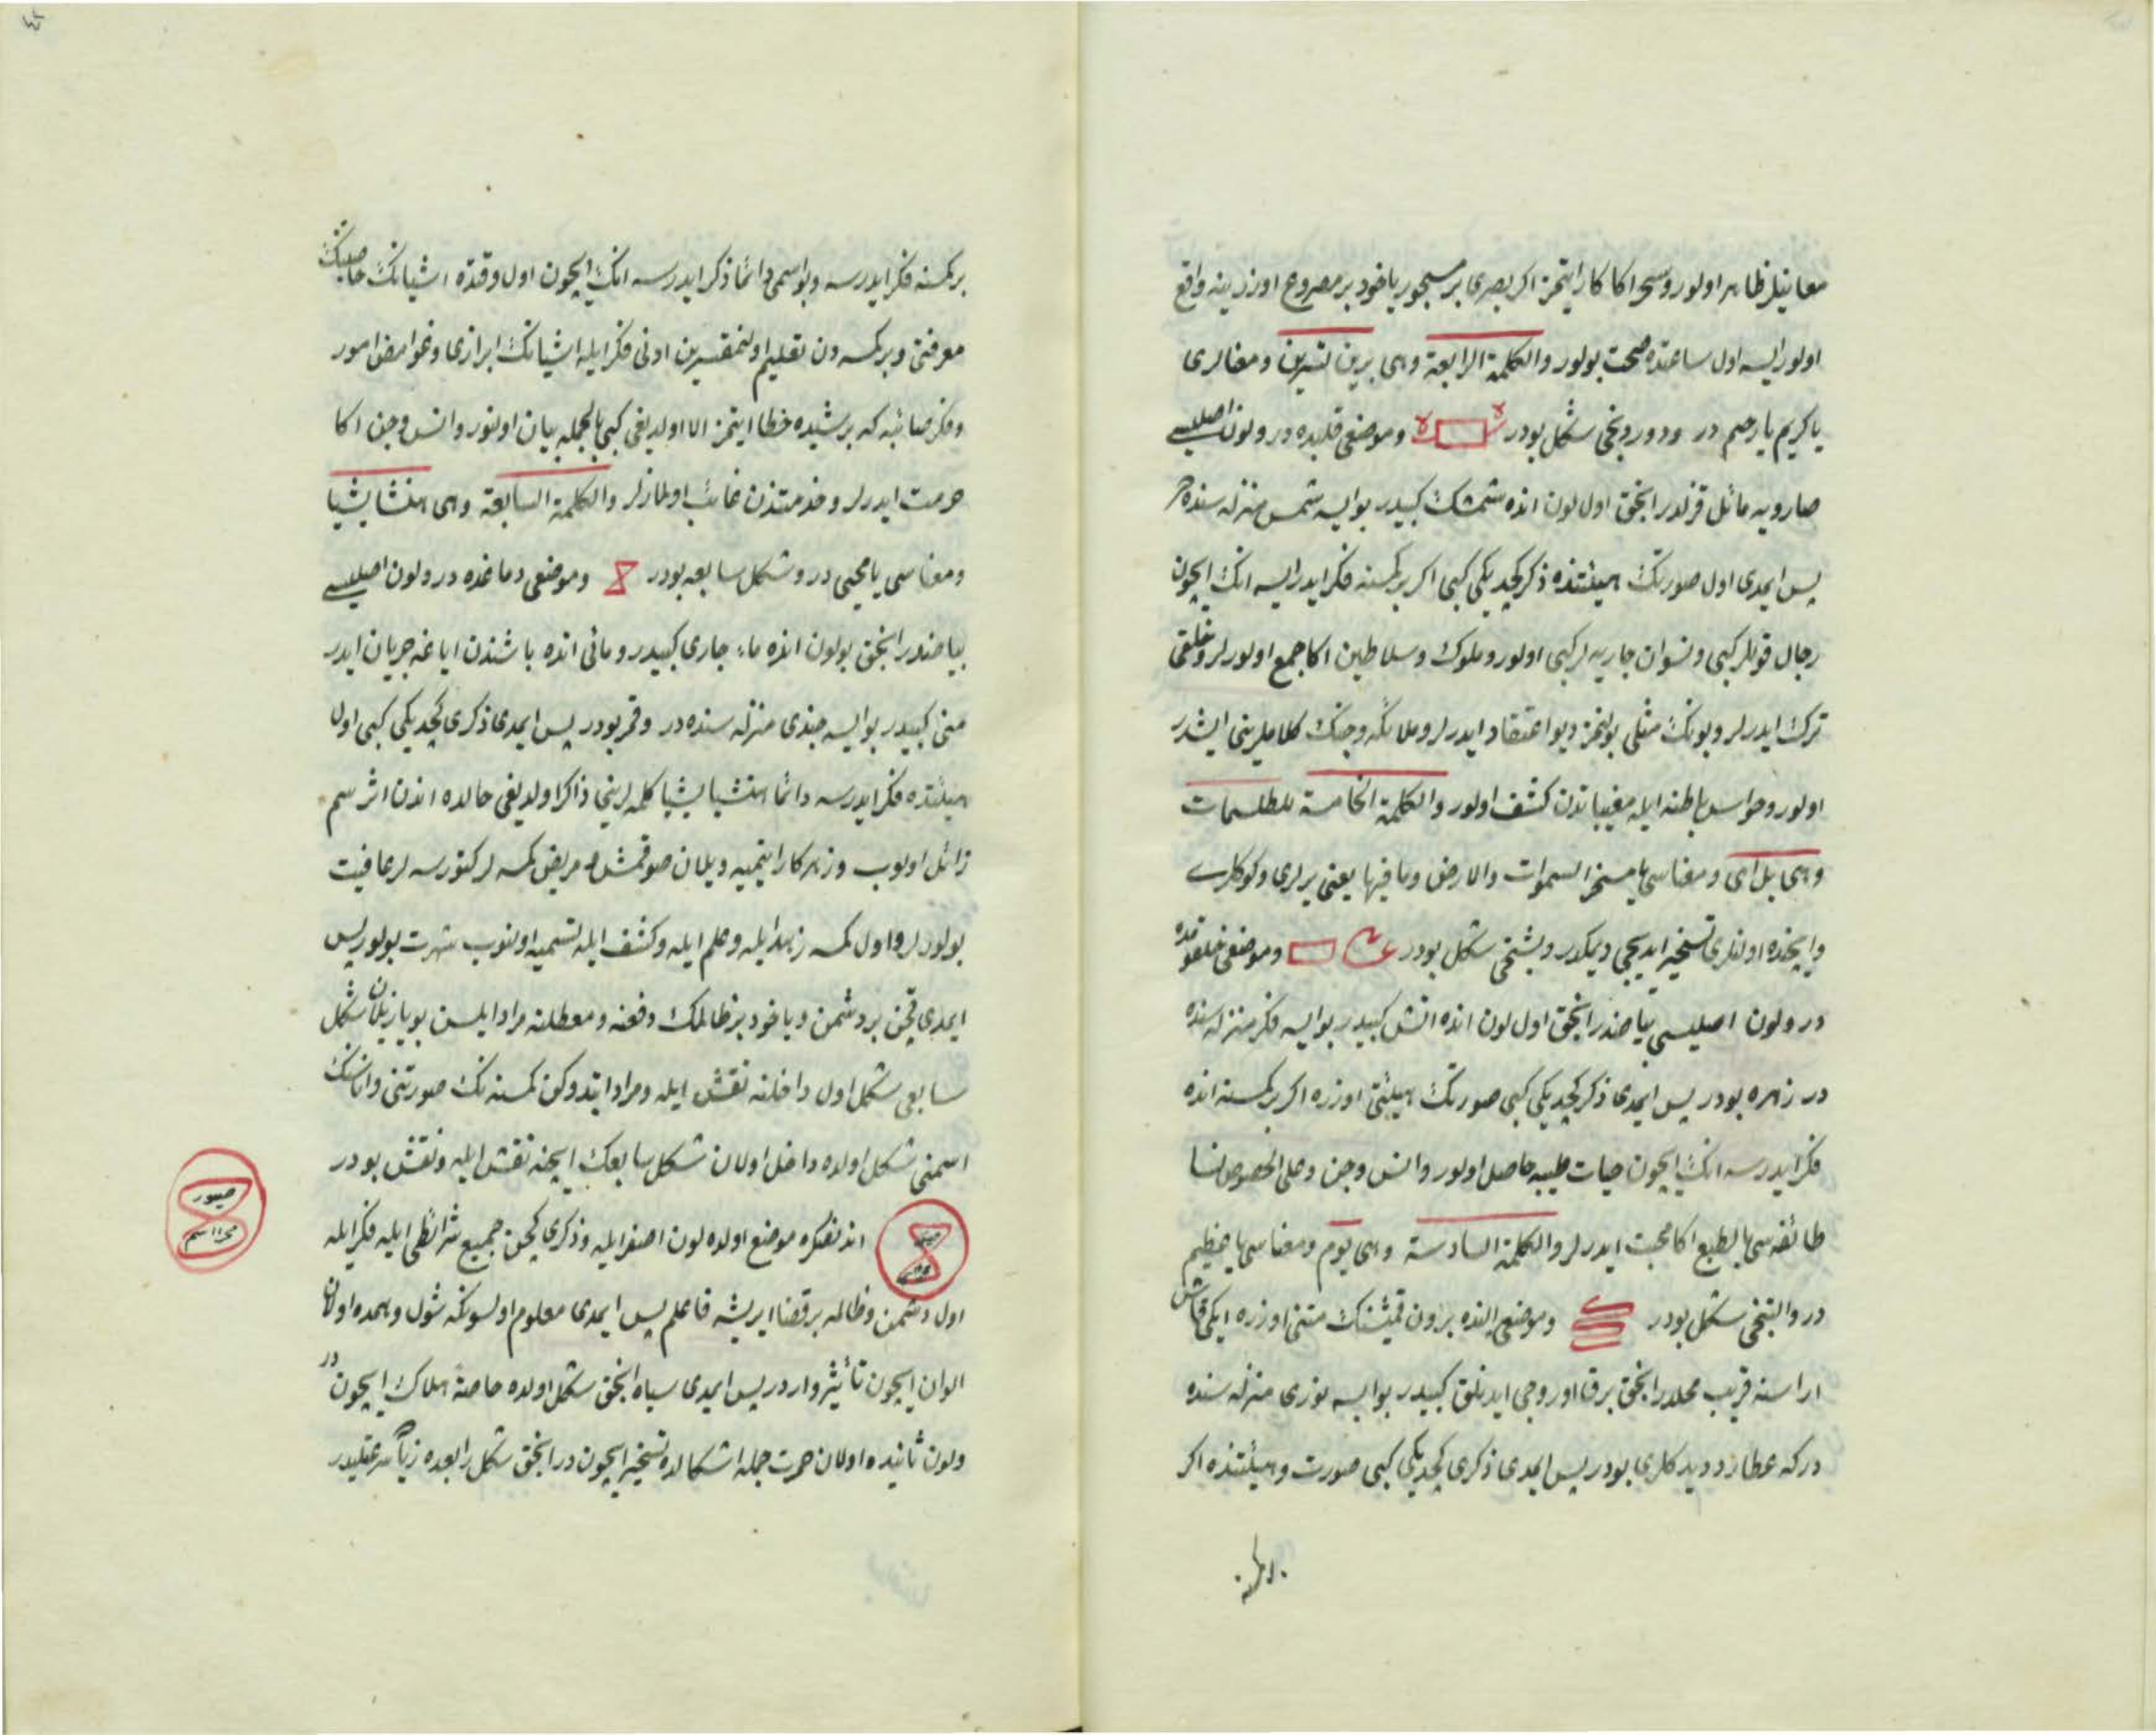 معانیلر ظاهر اولور و سحر اكا كار ایتمز اكر بصری بر مسحور یاخود بر مصروع اوزرینه واقع
اولور ایسه اول ساعتده صحت بولور والكلمة الرابعة وهی برین لتبرین ومعنالری
یا كریم یا رحیم در و دوردنجی شكل بودر وموضعی قلبده در و لون اصلیسی
صاریه مائل قزلدر انجق اول لون انده شمشك كبیدر بو ایسه شمس منزله سنده در
پس ایمدی اول صورتك هیئتنده ذكر كجدیكی كبی اكر بر كمسنه فكر ایدر ایسه انك ایچون
رجال قوللر كبی و نسوان جاریه لر كبی اولور و ملوك و سلاطین اكا جمع اولورلر و خلقی
ترك ایدرلر و بونك مثلی بولنمز دیو اعتقاد ایدرلر و ملائكه و جنك كلاملرینی ایشدر
اولور و حواس باطنه ایله مغیباتدن كشف اولور والكلمة الخامسة للطلسمات
وهی بل ای و معناسی یا مسخر السموات والارض وما فیها یعنی یرلری و كوكلری
و ایچنده اولنلری تسخیر ایدیجی دیمكدر و بشنجی شكل بودر وموضعی حلقومده
در و لون اصلیسی بیاضدر انجق اول لون انده اتش كبیدر بو ایسه فكر منزله سنده
در زهره بودر پس ایمدی ذكر كجدیكی كبی صورتك هیئتی اوزره اكر بر كمسنه انده
فكر ایدرسه انك ایچون حیات طیبه حاصل اولور و انس و جن و علی الخصوص نسا
طائفه سی بالطبع اكا محبت ایدرلر والكلمة السادسة وهی یوم و معناسی یا عظیم
در و التنجی شكل بودر وموضعی النده برون قمیشنك متنی اوزره ایكی قاش
اراسنه قریب محلدر انجق بو ایسه نوری منزله سنده
در كه عطارد دیدكلری بودر پس ایمدی ذكری كجدیكی كبی صورت و هیئتنده اكر
بر كمسنه فكر ایدرسه و بو اسمی دائما ذكر ایدرسه انك ایچون اول وقتده اشیانك خاصیتنك
معرفتی و بر كمسه دن تعلیم اولنمقسزین ادنی فكر ایله اشیانك ابرازی و غوامض امور
و فكر صائبه كه بر شیده خطا ایتمز الا اولدیغی كبی بالجمله بیان اولنور و انس و جن اكا
حرمت ایدرلر و خدمتندن غائب اولمازلر والكلمة السابعة وهی هنشا یشیا
و معناسی یا محیی در و شكل سابعه بودر وموضعی دماغده در و لون اصلیسی
بیاضدر انجق بو لون انده ماء جاری كبیدر و مائی انده باشندن ایاغه جریان ایدر
منی كبیدر بو ایسه جندی منزله سنده در و قمر بودر پس ایمدی ذكری كجدیكی كبی اول
هیئتده فكر ایدرسه دائما هنشیا یشیا كلمه لرینی ذاكر اولدیغی حالده اندن اثر سم
زائل اولوب و زهر كار ایتمیه و یلان صوقمش و مریض كمسه لر كتورسه لر عافیت
بولورلر و اول كمسه زهد ایله و علم ایله و كشف ایله تسمیه اولنوب شهرت بولور پس
ایمدی قچن بر دشمن و یاخود بر ظالمك دفعنه و معطلنه مراد ایلسن بو یازیلان شكل
سابعی شكل اول داخلنه نقش ایله و مراد ایتدوكن كمسنه نك صورتنی و اناسنك
اسمنی شكل اولده داخل اولان شكل سابعك ایچنه نقش ایله و نقش بودر
اندنصكره موضع اولده لون اصفر ایله و ذكری كچن جمیع شرائطی ایله فكر ایله
اول دشمن و ظالمه بر قضا ایریشه فاعلم پس ایمدی معلوم اولسونكه شول وهمده اولان
الوان ایچون تأثیر واردر پس ایمدی سیاه انجق شكل اولده خاصة هلاك ایچوندر
و لون ثانیده اولان حمرت جمله اشكالده تسخیر ایچوندر انجق شكل رابعده زیاده